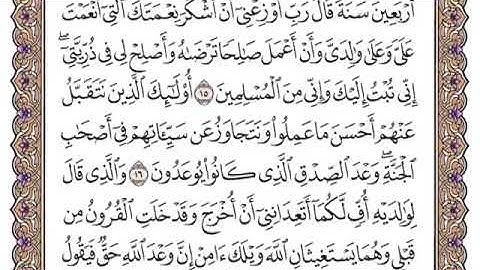 أَرْبَعِينَ سَنَةً قَالَ رَبِّ أَوْزِعْنِيٓ أَنْ أَشْكُرَ نِعْمَتَكَ ٱلَّتِيٓ أَنْعَمْتَ
عَلَيَّ وَعَلَىٰ وَٰلِدَيَّ وَأَنْ أَعْمَلَ صَٰلِحًا تَرْضَىٰهُ وَأَصْلِحْ لِي فِي ذُرِّيَّتِيٓۖ
إِنِّي تُبْتُ إِلَيْكَ وَإِنِّي مِنَ ٱلْمُسْلِمِينَ ١٥ أُوْلَٰٓئِكَ ٱلَّذِينَ نَتَقَبَّلُ
عَنْهُمْ أَحْسَنَ مَا عَمِلُواْ وَنَتَجَاوَزُ عَن سَيِّـَٔاتِهِمْ فِيٓ أَصْحَٰبِ
ٱلْجَنَّةِۖ وَعْدَ ٱلصِّدْقِ ٱلَّذِي كَانُواْ يُوعَدُونَ ١٦ وَٱلَّذِي قَالَ
لِوَٰلِدَيْهِ أُفّٖ لَّكُمَآ أَتَعِدَانِنِيٓ أَنْ أُخْرَجَ وَقَدْ خَلَتِ ٱلْقُرُونُ مِن
قَبْلِي وَهُمَا يَسْتَغِيثَانِ ٱللَّهَ وَيْلَكَ ءَامِنْ إِنَّ وَعْدَ ٱللَّهِ حَقّٞ فَيَقُولُ